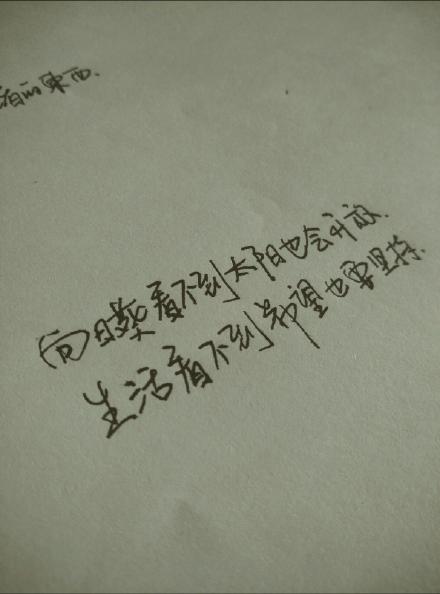 有的东西.
向日葵看不到太阳也会开放.
生活看不到希望也要坚持.